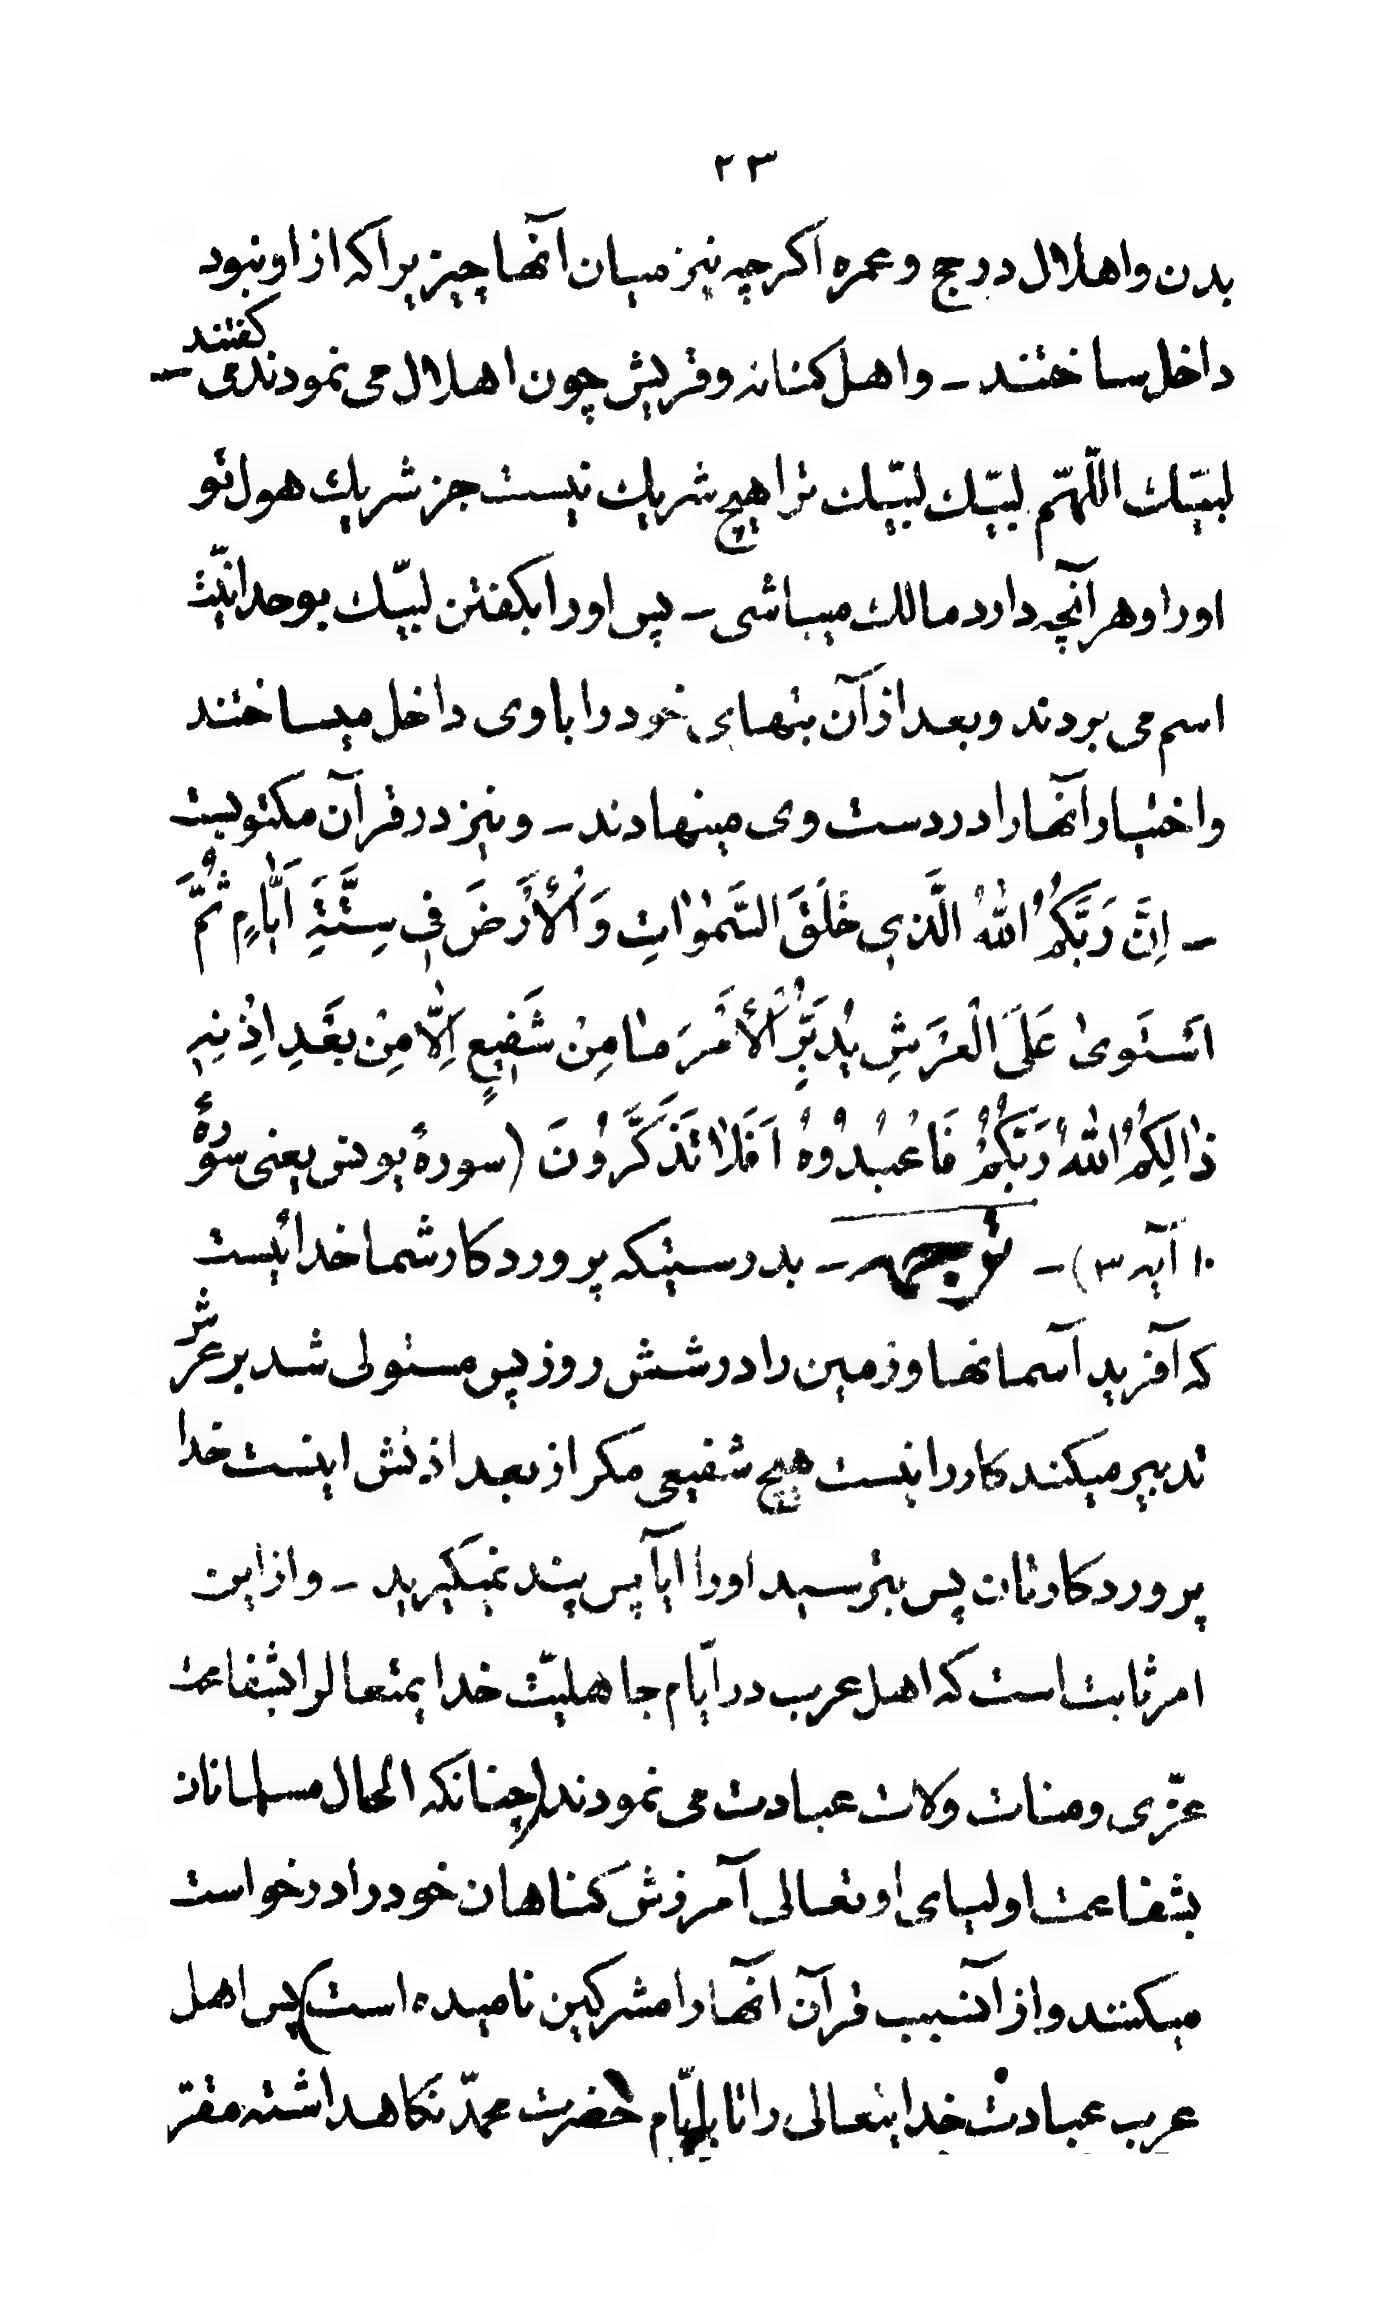 ٢٣
بدن واهلال در حج و عمره اکرچه نیز میان آنها چیزیرا که از او نبود
داخل ساختند – واهل کنانه وقریش چون اهلال می نمودند می کفتند –
لبّیک اللّهمّ لبّیک لبّیک ترا هیچ شریک نیست جز شریک هول تو
اورا وهر آنچه دارد مالک میباشی – پس اورا بکفتن لبّیک بوحدانیّت
اسم می بردند وبعد از آن بتهای خودرا باوی داخل میساختند
واختیار آنها را در دست وی مینهادند – ونیز در قرآن مکتوبست
– اِنَّ رَبَّكُمُ اللهُ الَّذِي خَلَقَ السَّمٰوٰاتِ وَالْأَرْضَ فِي سِتَّةِ اَيّٰامٍ ثُمَّ
اسْتَوىٰ عَلَى الْعَرْشِ يُدَبِّرُ الْأَمْرَ مٰا مِنْ شَفِيعٍ اِلّٰا مِنْ بَعْدِ اِذْنِهِ
ذٰالِكُمُ اللهُ رَبُّكُمْ فَاعْبُدُوهُ اَفَلٰا تَذَكَّرُونَ (سورهٔ یونس یعنی سورهٔ
١٠ آیه ٣) – توجمه – بدرستیکه پروردکار شما خدائیست
که آفرید آسمانها وزمین را در شش روز پس مستولی شد بر عرش
تدبیر میکند کاررا نیست هیچ شفیعی مکر از بعد اذنش اینست خدا
پروردکارتان پس بترسید اورا ایآ پس پند نمیکیرید – واز این
امر ثابت است که اهل عرب در ایّام جاهلیّت خدایمتعالرا بشفاعت
عزّی ومنات ولات عبادت می نمودند (چنانکه الحال مسلمانان
بشفاعت اولیای اوتعالی آمرزش کناهان خودرا درخواست
میکنند واز آنسبب قرآن آنها را مشرکین نامیده است) پس اهل
عرب عبادت خدایتعالی را تا بایّام حضرت محمّد نکاهداشته مقرّ